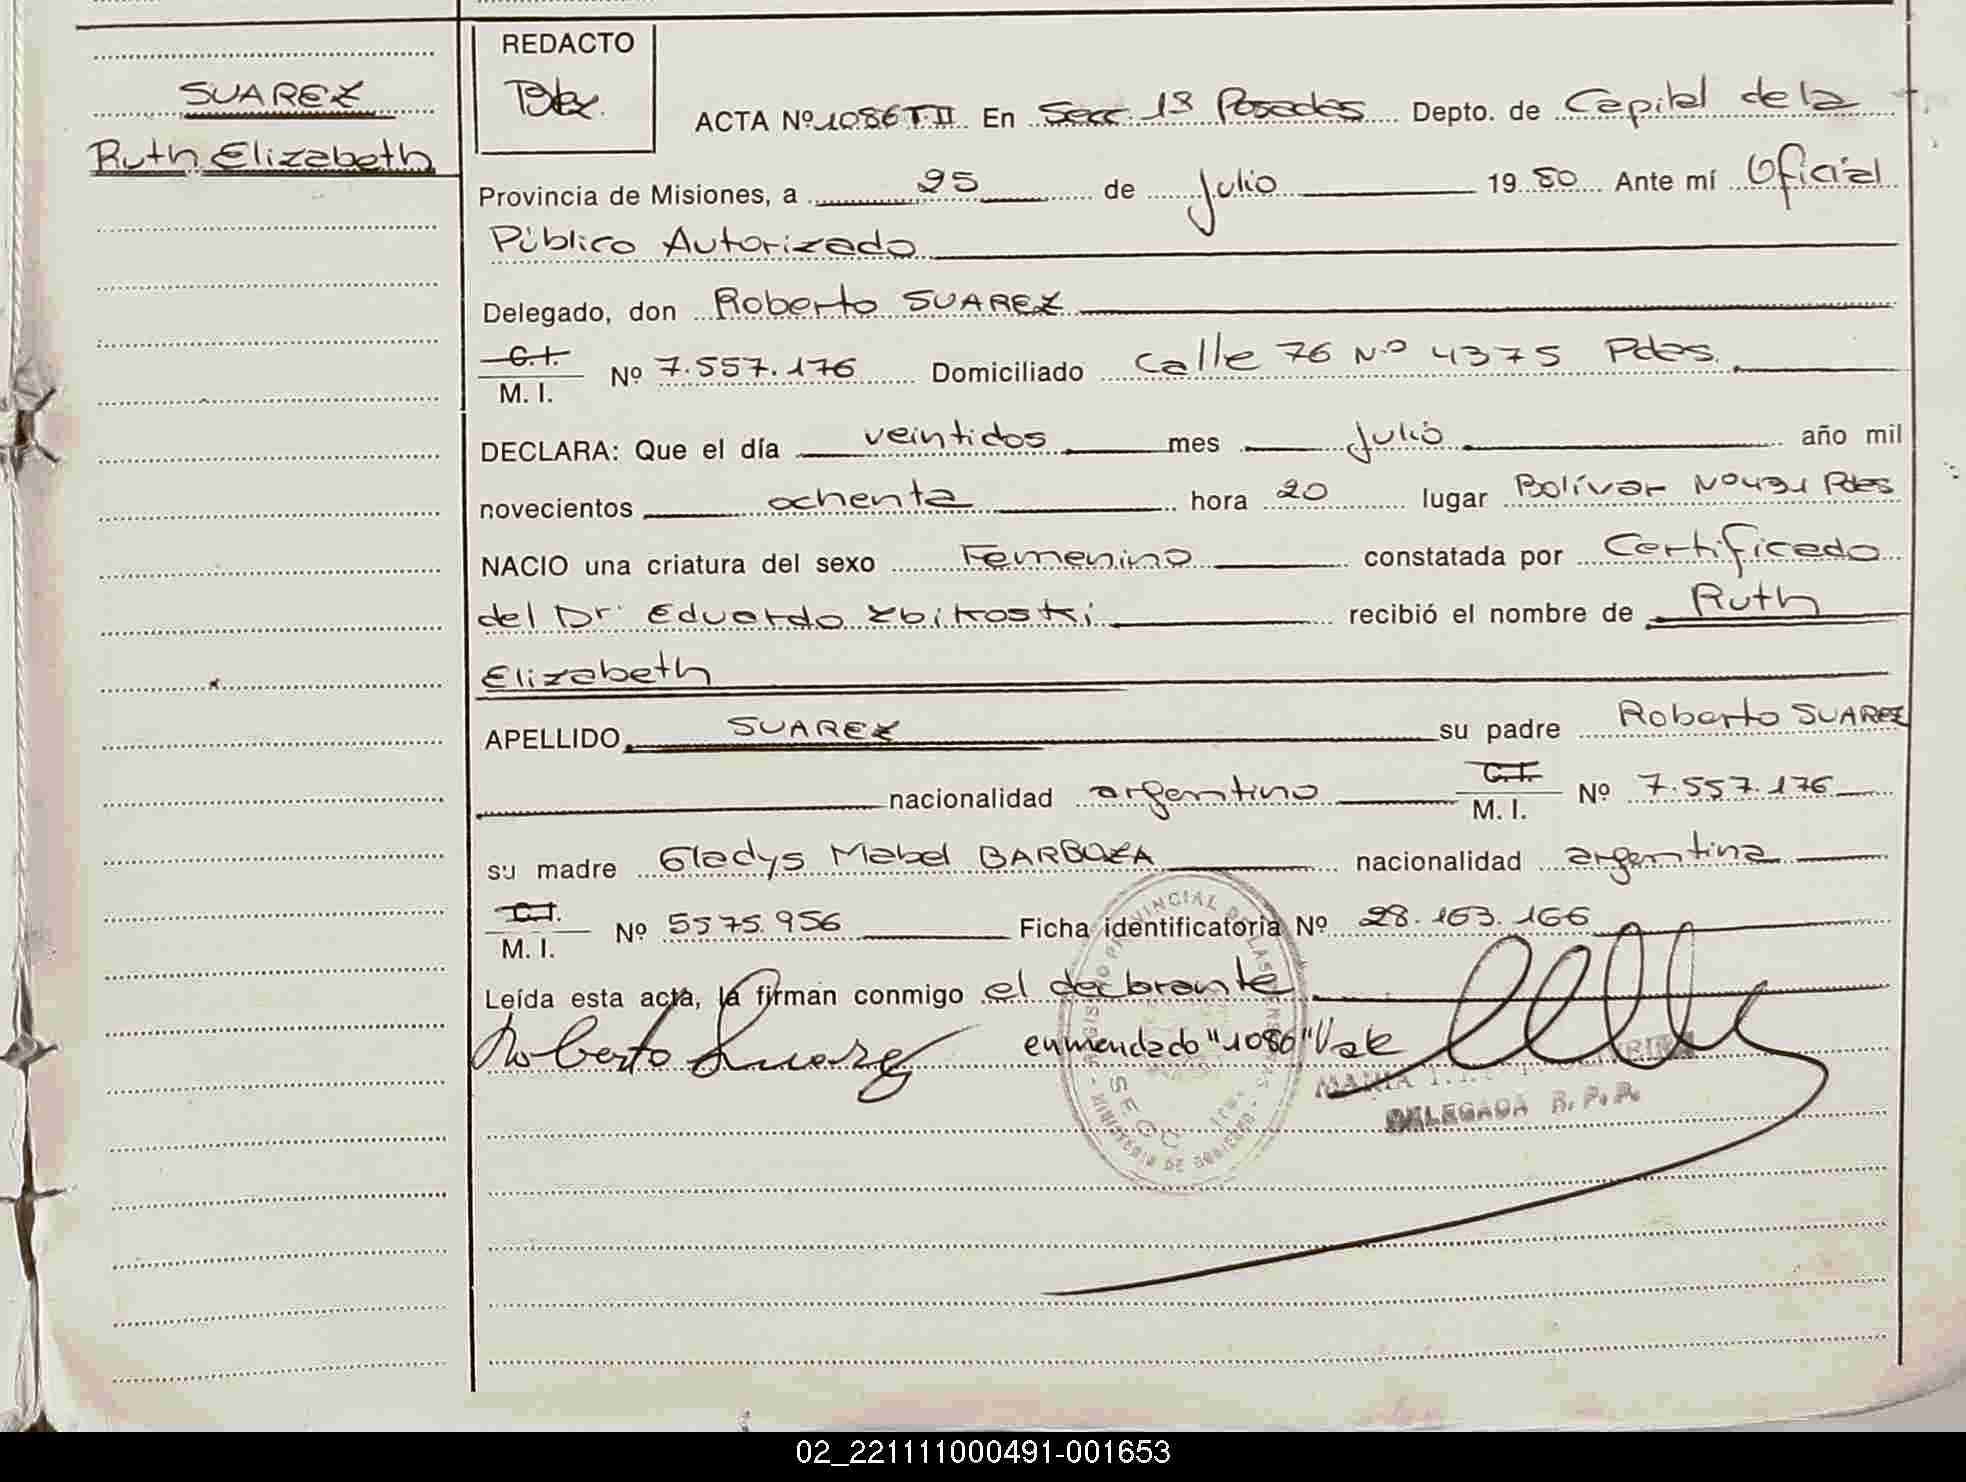 SUAREZ
Ruth Elizabeth
REDACTO
ACTA Nº 1086 T.II En Secc. 1ª Posadas Depto. de Capital de la
Provincia de Misiones, a 25 de Julio 1980 Ante mí Oficial
Público Autorizado
Delegado, don Roberto SUAREZ
C.I.
M. I. Nº 7.557.176 Domiciliado calle 76 Nº 4375 Pdas.
DECLARA: Que el día veintidos mes Julio año mil
novecientos ochenta hora 20 lugar Bolívar Nº 431 Pdas
NACIO una criatura del sexo Femenino constatada por Certificado
del Dr. Eduardo Zbikoski recibió el nombre de Ruth
Elizabeth
APELLIDO SUAREZ su padre Roberto SUAREZ
nacionalidad argentino C.I. M. I. Nº 7.557.176
su madre Gladys Mabel BARBOZA nacionalidad argentina
C.I.
M. I. Nº 5575.956 Ficha identificatoria Nº 28.163.166
Leída esta acta, la firman conmigo el declarante
Roberto Suarez enmendado "1086" Vale
MARIA
DELEGADA R.P.P.
REGISTRO PROVINCIAL DE LAS PERSONAS
MINISTERIO DE GOBIERNO
SECC.
02_221111000491-001653